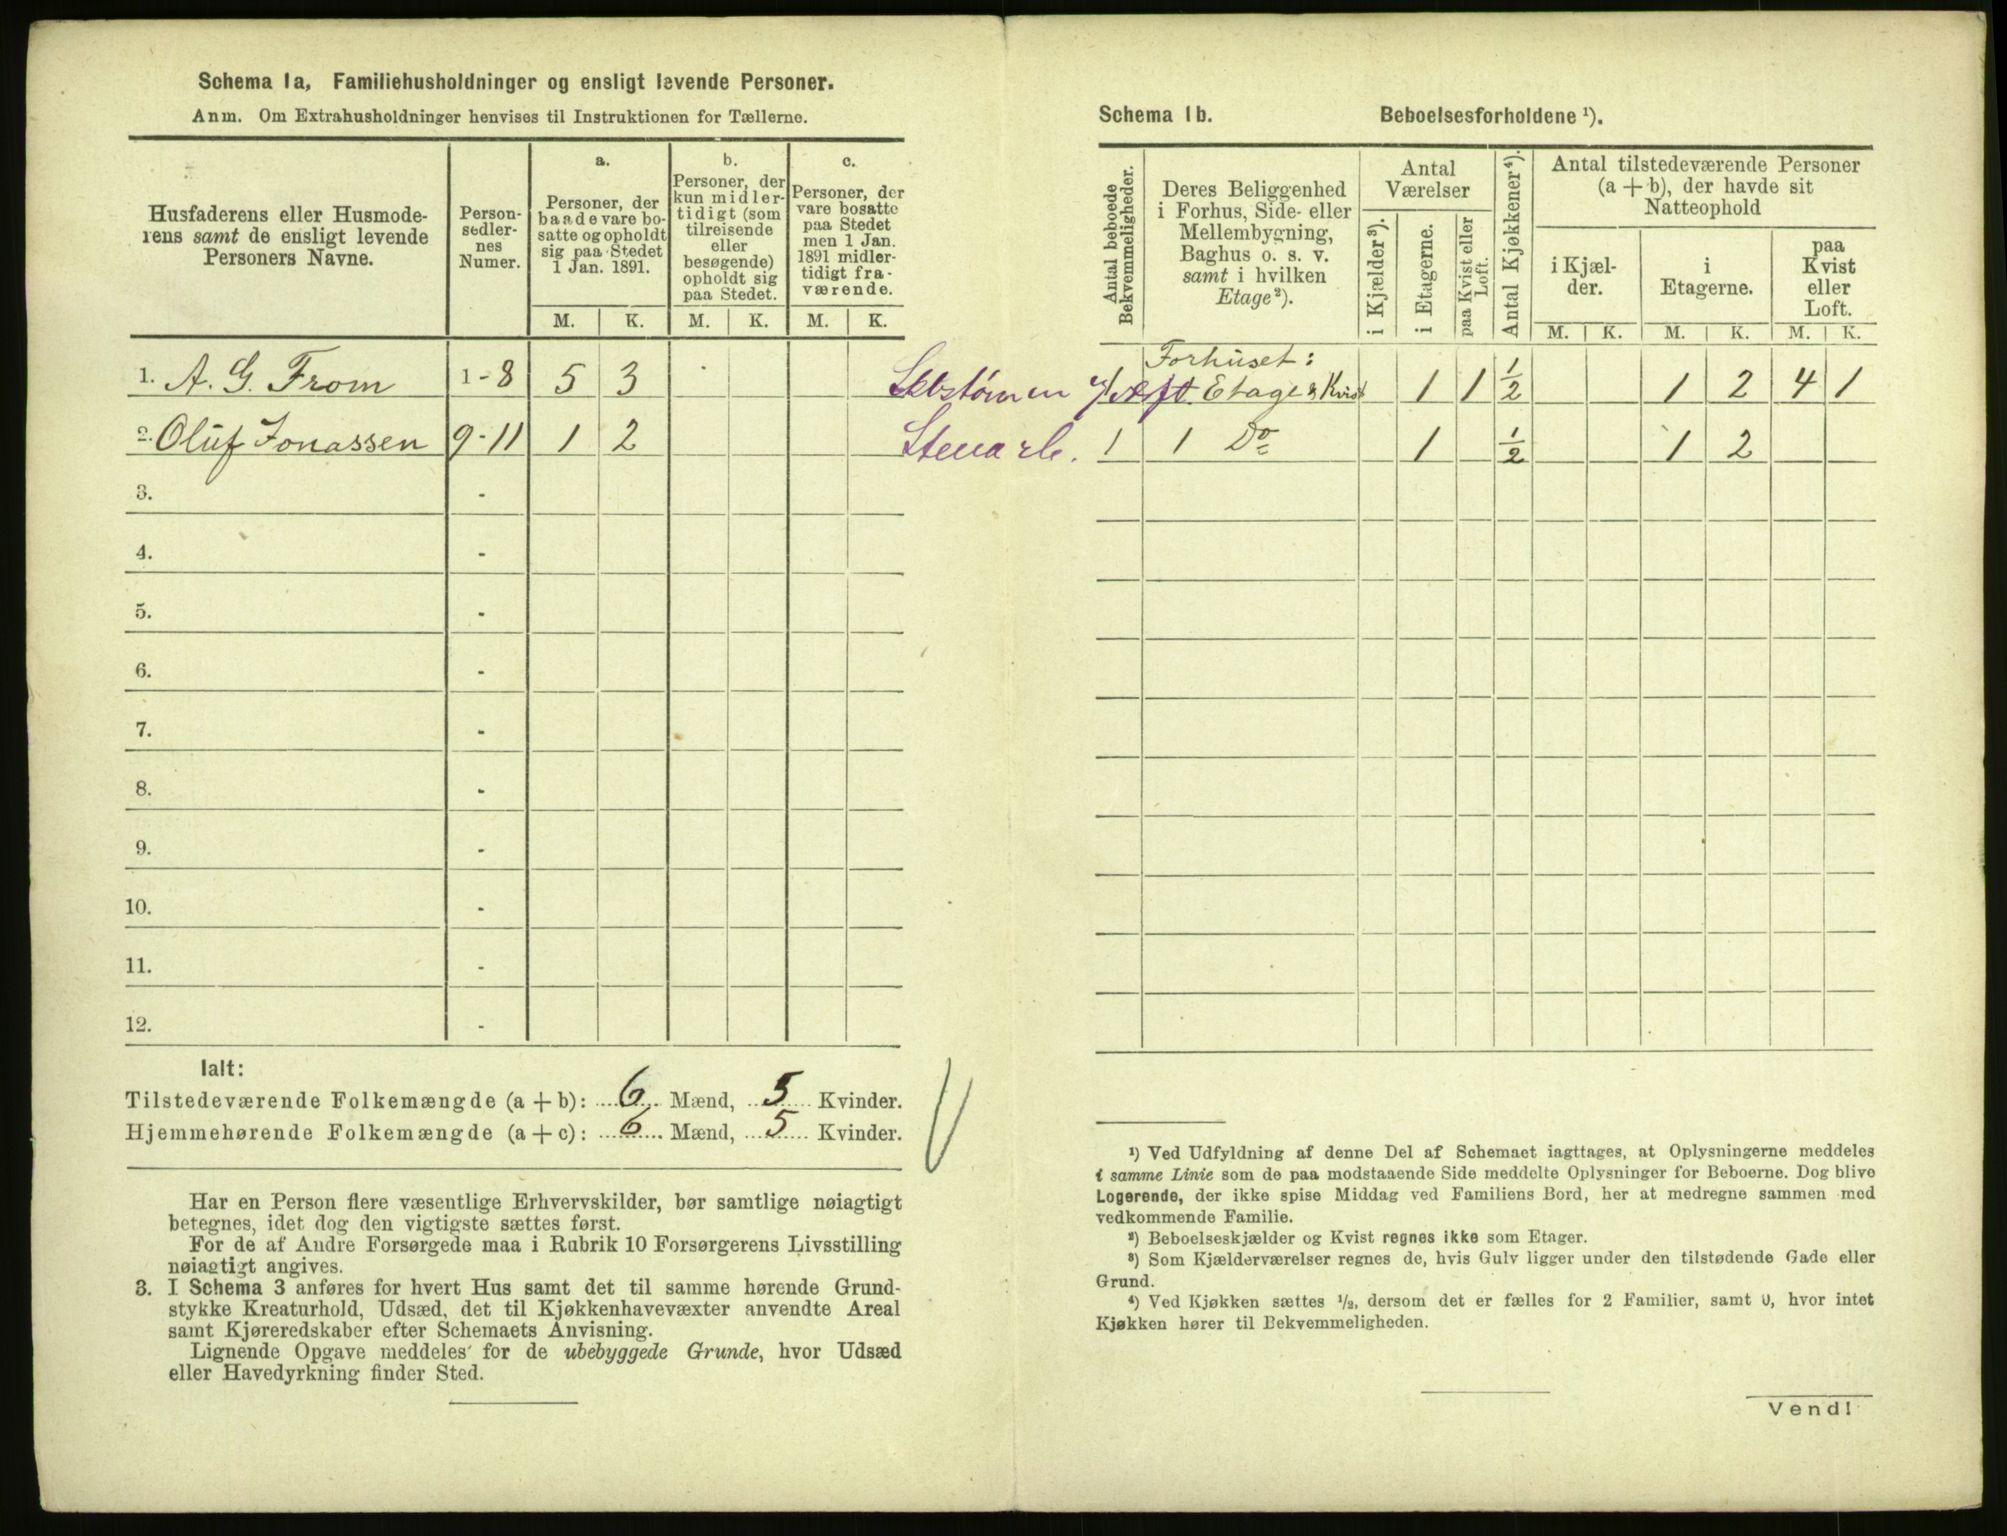 Schema 1a, Familiehusholdninger og ensligt levende Personer.
Anm. Om Extrahusholdninger henvises til Instruktionen for Tællerne.
Husfaderens eller Husmode-
rens samt de ensligt levende
Personers Navne.
Person-
sedler-
nes
Numer.
a.
Personer, der
baade vare bo-
satte og opholdt
sig paa Stedet
1 Jan. 1891.
b.
Personer, der
kun midler-
tidigt (som
tilreisende
eller
besøgende)
opholdt sig
paa Stedet.
c.
Personer, der
vare bosatte
paa Stedet
men 1 Jan.
1891 midler-
tidigt fra-
værende.
M. K. M. K. M. K.
1. A. G. From 1-8 5 3
2. Oluf Jonassen 9-11 1 2
3. -
4. -
5. -
6. -
7. -
8. -
9. -
10. -
11. -
12. -
Ialt:
Tilstedeværende Folkemængde (a + b): 6 Mænd, 5 Kvinder.
Hjemmehørende Folkemængde (a + c): 6 Mænd, 5 Kvinder.
Har en Person flere væsentlige Erhvervskilder, bør samtlige nøiagtigt
betegnes, idet dog den vigtigste sættes først.
For de af Andre Forsørgede maa i Rubrik 10 Forsørgerens Livsstilling
nøiagtigt angives.
3. I Schema 3 anføres for hvert Hus samt det til samme hørende Grund-
stykke Kreaturhold, Udsæd, det til Kjøkkenhavevæxter anvendte Areal
samt Kjøreredskaber efter Schemaets Anvisning.
Lignende Opgave meddeles for de ubebyggede Grunde, hvor Udsæd
eller Havedyrkning finder Sted.
Schema 1b. Beboelsesforholdene ¹).
Antal beboede
Bekvemmeligheder.
Deres Beliggenhed
i Forhus, Side- eller
Mellembygning,
Baghus o. s. v.
samt i hvilken
Etage²).
Antal
Værelser
i Kjælder³).
i Etagerne.
paa Kvist eller
Loft.
Antal Kjøkkener⁴).
Antal tilstedeværende Personer
(a + b), der havde sit
Natteophold
i Kjæl-
der.
i
Etagerne.
paa
Kvist
eller
Loft.
M. K. M. K. M. K.
Forhuset:
1 Etage & Kvist 1 1 ½ 1 2 4 1
Stenarb. 1 1 Do 1 ½ 1 2
¹) Ved Udfyldning af denne Del af Schemaet iagttages, at Oplysningerne meddeles
i samme Linie som de paa modstaaende Side meddelte Oplysninger for Beboerne. Dog blive
Logerende, der ikke spise Middag ved Familiens Bord, her at medregne sammen med
vedkommende Familie.
²) Beboelseskjælder og Kvist regnes ikke som Etager.
³) Som Kjælderværelser regnes de, hvis Gulv ligger under den tilstødende Gade eller
Grund.
⁴) Ved Kjøkken sættes ½, dersom det er fælles for 2 Familier, samt 0, hvor intet
Kjøkken hører til Bekvemmeligheden.
Vend!